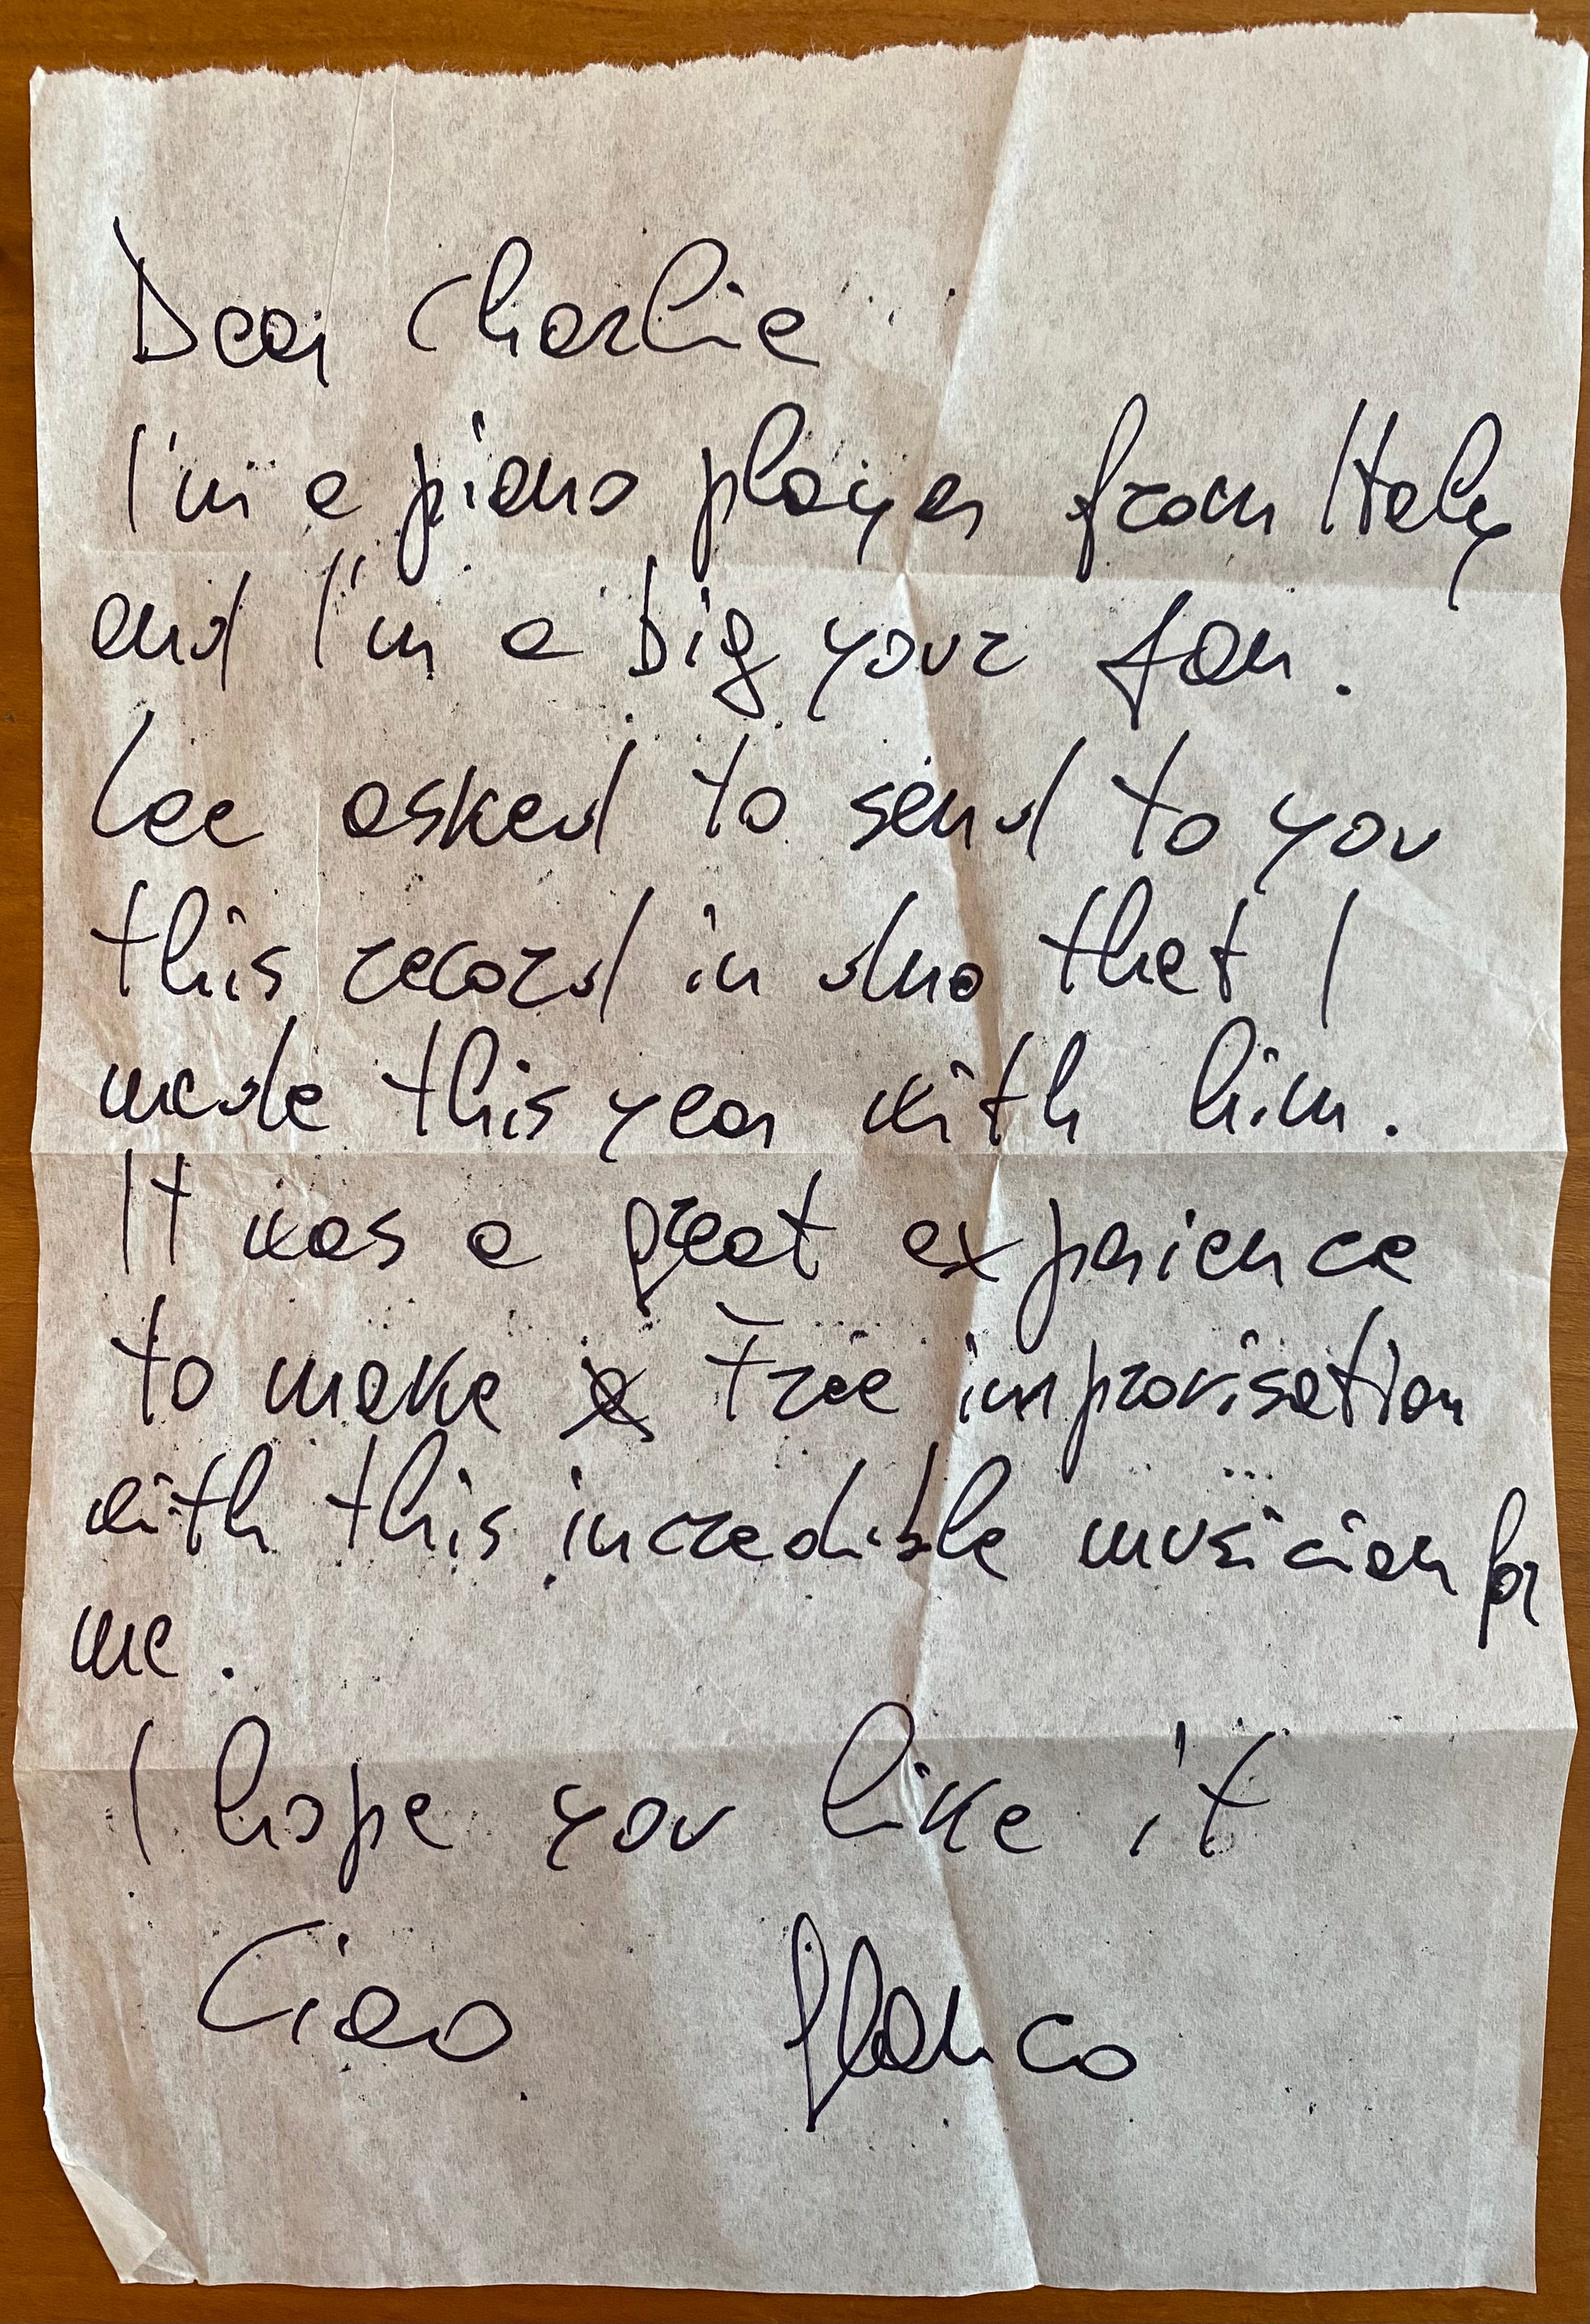 Dear Charlie
I'm a piano player from Italy
and I'm a big your fan.
Lee asked to send to you
this record in duo that I
made this year with him.
It was a great experience
to make free improvisation
with this incredible musician for
me.
I hope you like it
Ciao Glauco